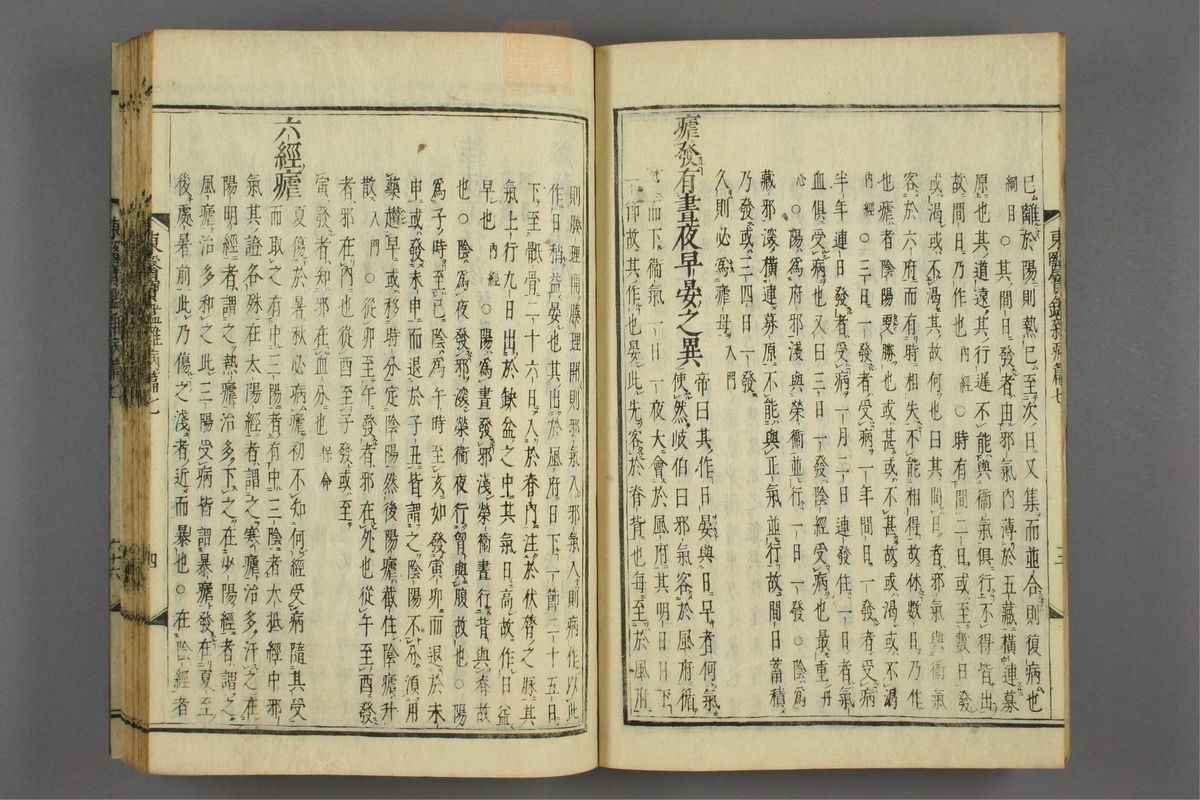 已離於陽則熱已至次日又集而並合則復病也
綱目○其間日發者由邪氣內薄於五藏橫連募
原也其道遠其行遲不能與衞氣俱行不得皆出
故間日乃作也內經○時有間二日或至數日發
或渴或不渴其故何也曰其間日者邪氣與衞氣
客於六府而有時相失不能相得故休數日乃作
也瘧者陰陽更勝也或甚或不甚故或渴或不渴
內經○三日一發者受病一年間日一發者受病
半年連日發者受病一月二日連發住一日者氣
血俱受病也又曰三日一發陰經受病也最重丹
心○陽爲府邪淺與榮衞並行一日一發○陰爲
藏邪深橫連募原不能與正氣並行故間日蓄積
乃發或三四日一發
久則必爲瘧母入門
瘧發有晝夜早晏之異 帝曰其作日晏與日早者何氣
使然岐伯曰邪氣客於風府循
而下衞氣一日一夜大會於風府其明日日下
一節故其作也晏此先客於脊背也每至於風府
東醫寶鑑雜病篇七
三
則腠理開腠理開則邪氣入邪氣入則病作以此
作日稍益晏也其出於風府日下一節二十五日
下至骶骨二十六日入於脊內注於伏膂之脉其
氣上行九日出於缺盆之中其氣日高故作日益
早也內經○陽爲晝發邪淺榮衞晝行背與脊故
也○陰爲夜發邪深榮衞夜行胷與腹故也○陽
爲子時至巳陰爲午時至亥如發寅卯而退於未
申或發未申而退於子丑皆謂之陰陽不分須用
藥趲早或移時分定陰陽然後陽瘧截住陰瘧升
散入門○從卯至午發者邪在外也從午至酉發
者邪在內也從酉至子發或至
寅發者知邪在血分也保命
六經瘧 夏傷於暑秋必病瘧初不知何經受病隨其受
而取之有中三陽者有中三陰者大抵經中邪
氣其證各殊在太陽經者謂之寒瘧治多汗之在
陽明經者謂之熱瘧治多下之在少陽經者謂之
風瘧治多和之此三陽受病皆謂暴瘧發在夏至
後處暑前此乃傷之淺者近而暴也○在陰經者
東醫寶鑑雜病篇七
四